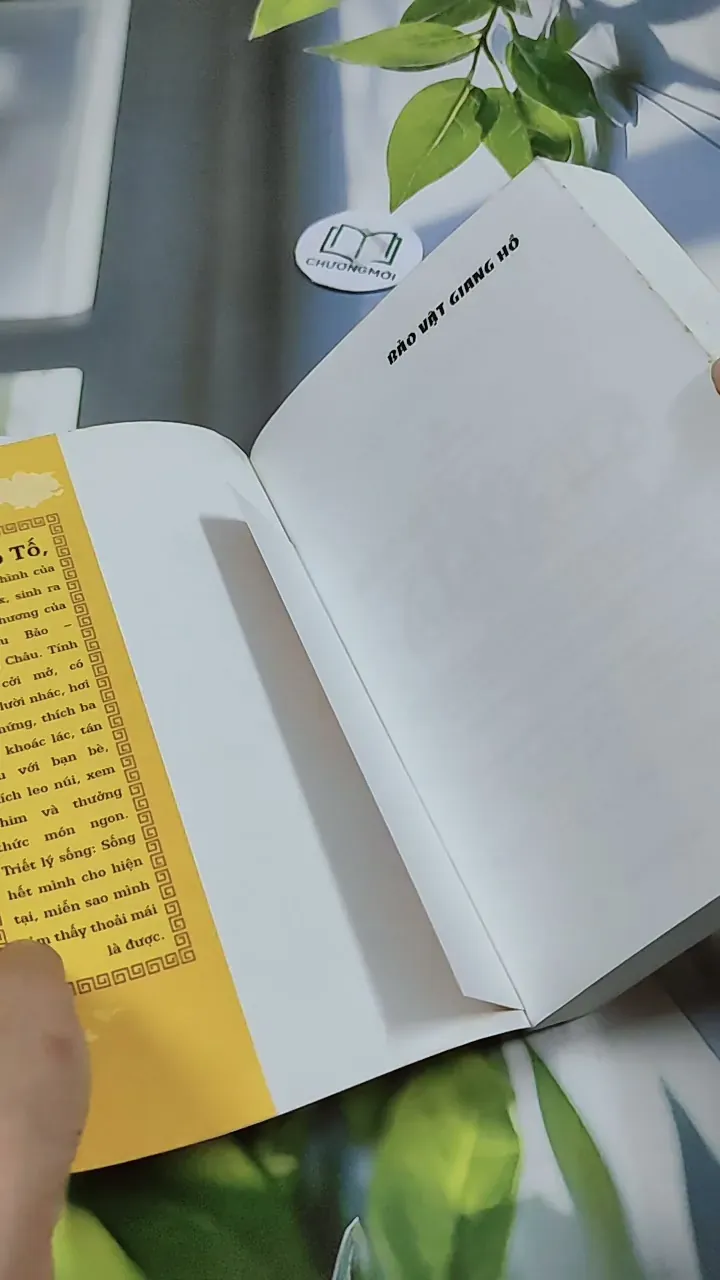 CHƯƠNGMỚI
BẢO VẬT GIANG HỒ
Tố,
hình của
sinh ra
hương của
Bảo –
Châu. Tính
cởi mở, có
lười nhác, hơi
hứng, thích ba
khoác lác, tán
với bạn bè,
leo núi, xem
và thưởng
thức món ngon.
Triết lý sống: Sống
hết mình cho hiện
tại, miễn sao mình
thấy thoải mái
là được.